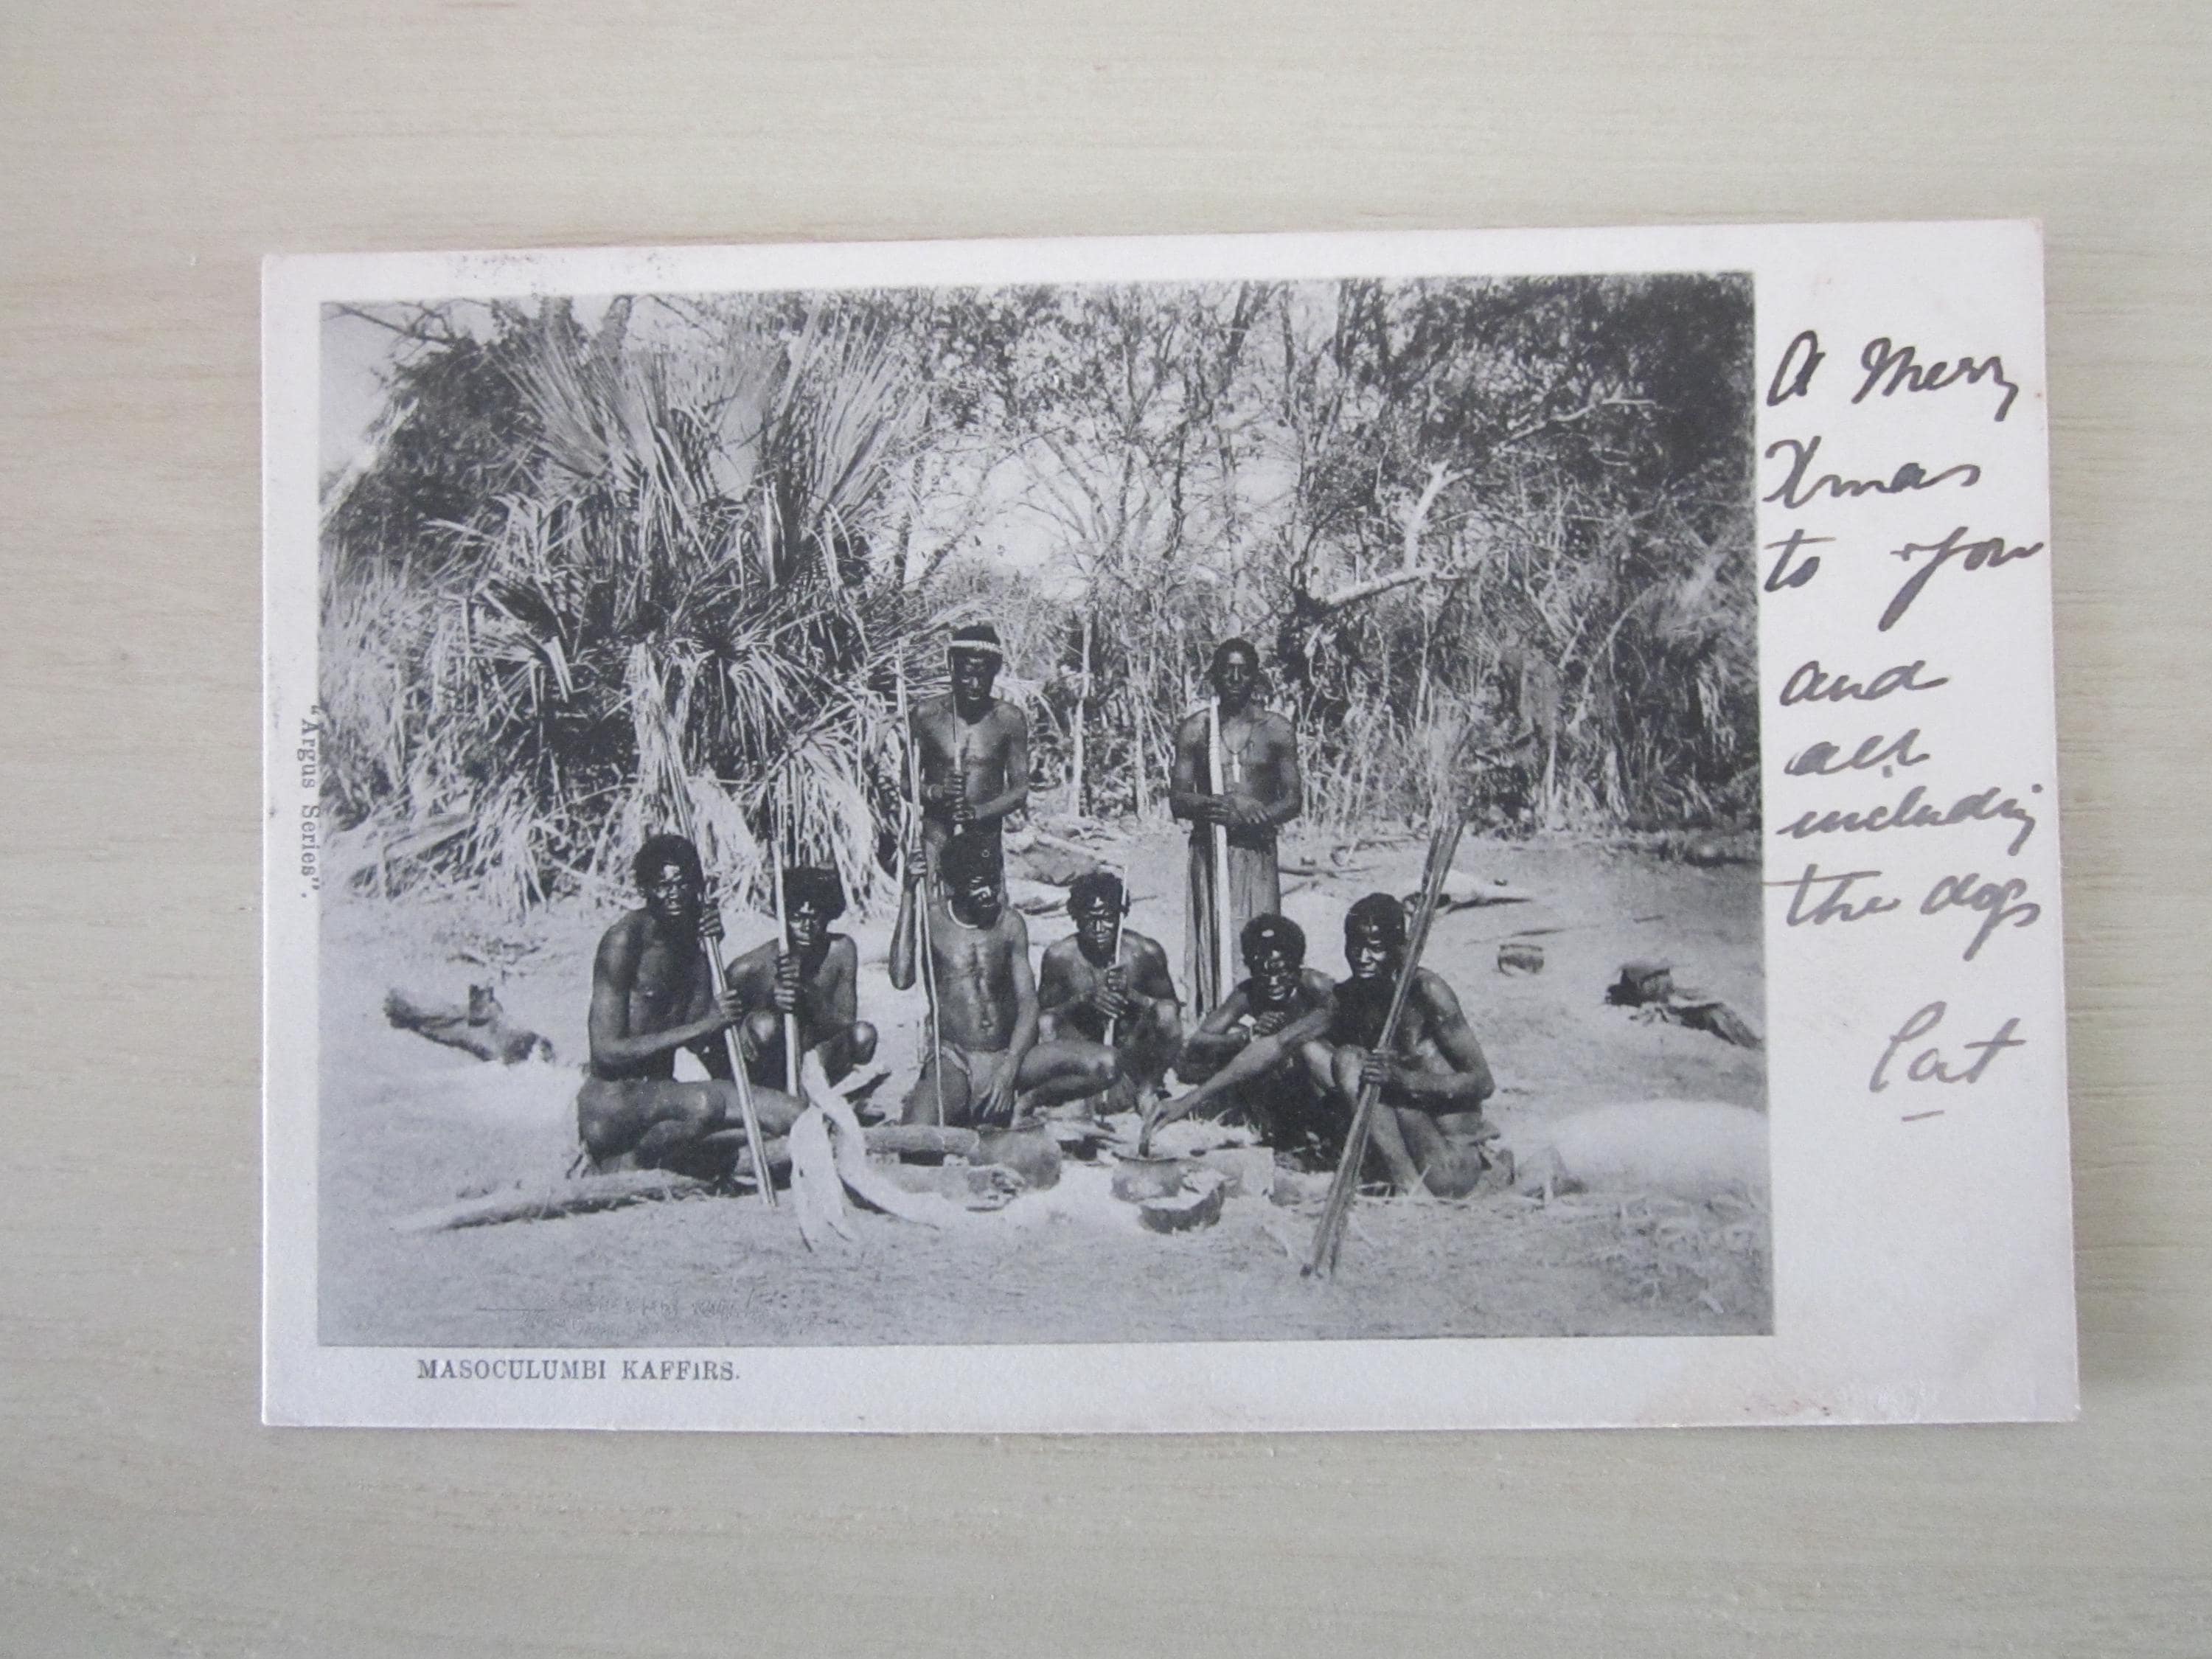 "Argus Series".
A Merry
Xmas
to you
and
all
including
the dogs
Pat
MASOCULUMBI KAFFIRS.